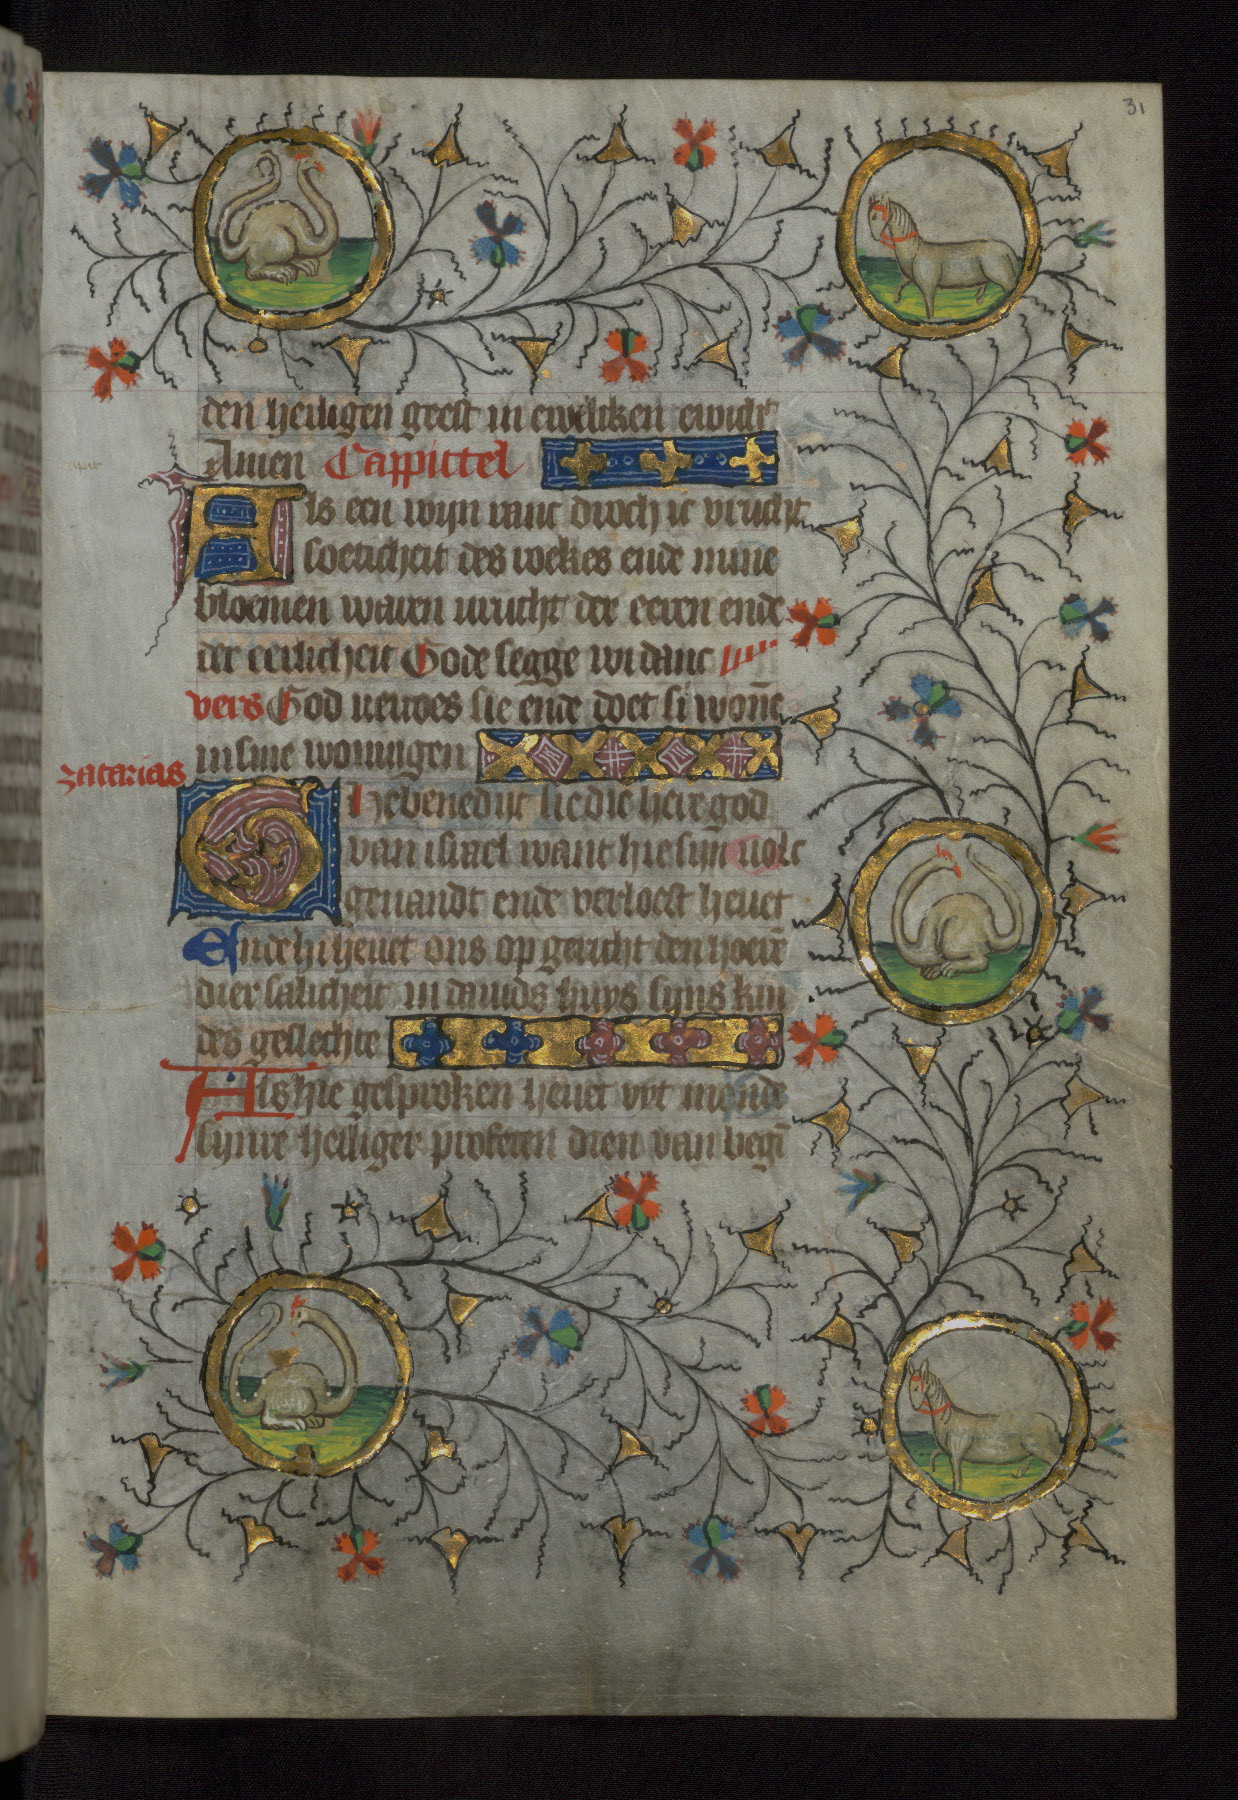 31
den heiligen geest in eweliken ewich&#x303;t
Amen Cappittel
Als een wijn ranc droch ic vrucht
soeticheit des roekes ende mine
bloemen waren vrucht der eeren ende
der eerlicheit Gode segge wi danc
vers God verroes sie ende doet si woñe
in sine woningen
zacarias
Ghebenedijt sie die here god
van israel want hie sijn volc
gevandt ende verloest hevet
Ende hi hevet ons op gericht den hoerẽ
dier salicheit in davids huys syns kin
des geslechte
Als hie gesproken hevet vyt monde
synre heiliger profeten dien van begĩ